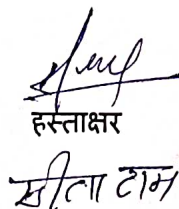 हस्ताक्षर
सीता राम